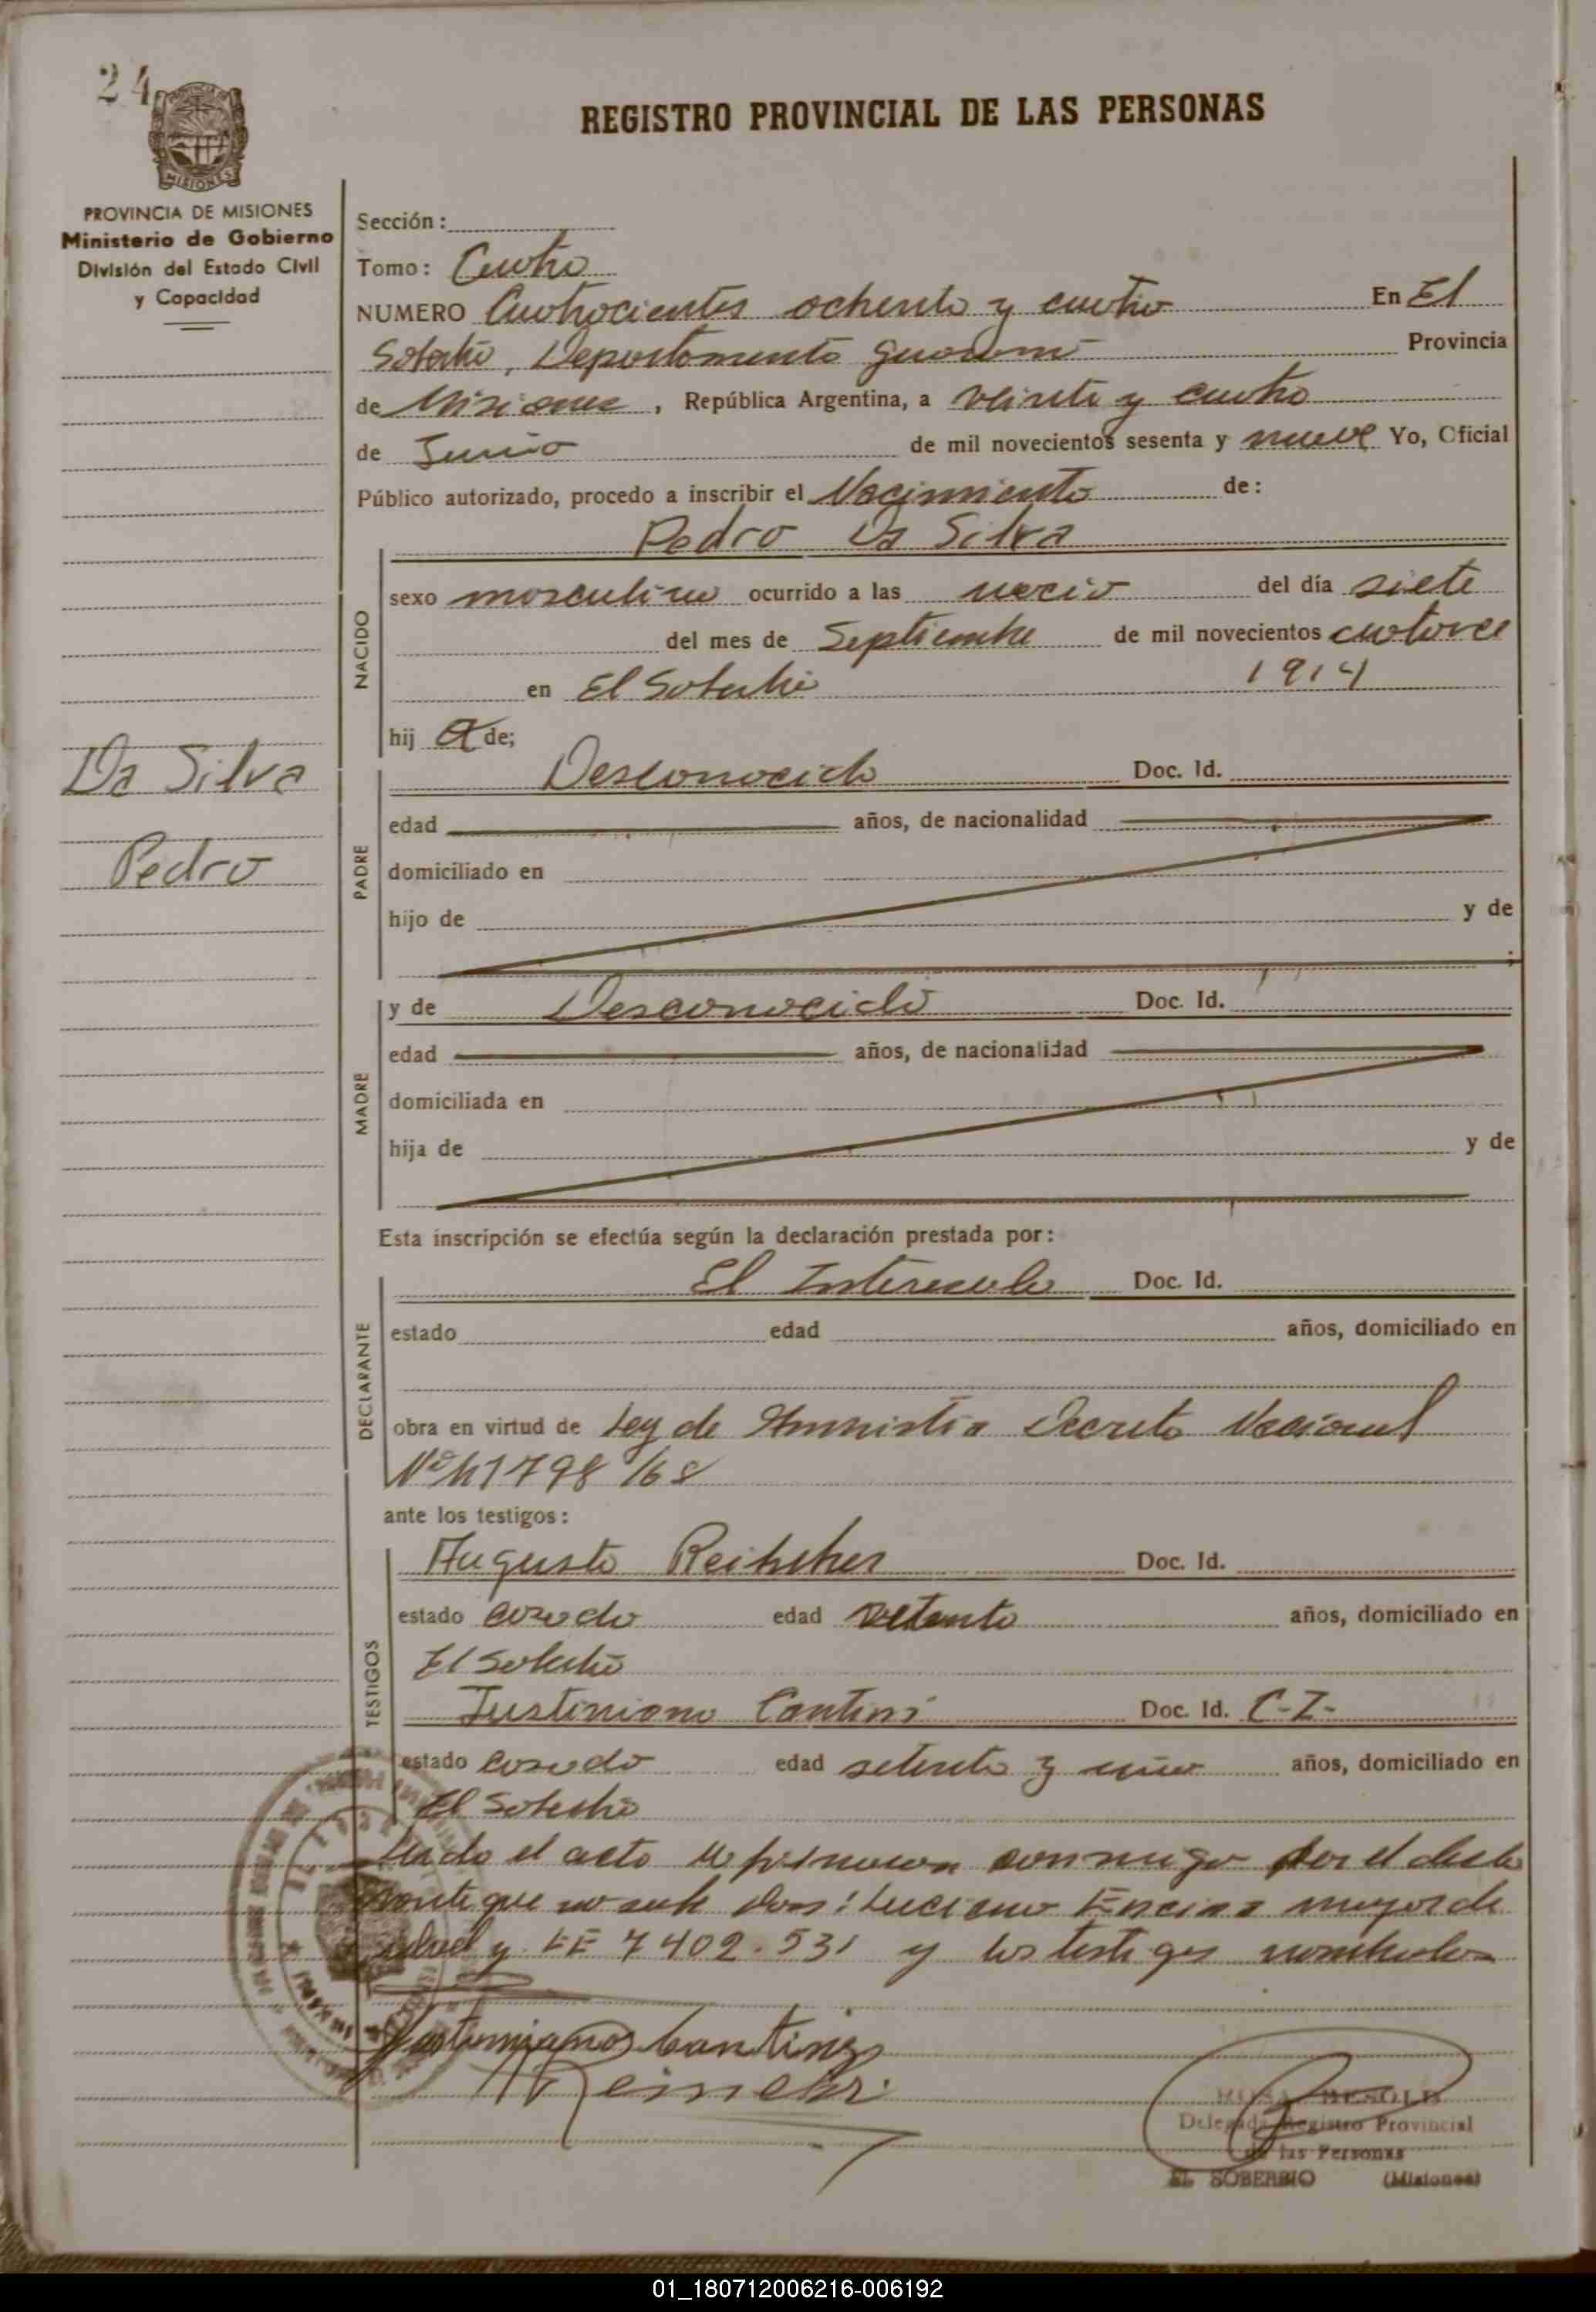 24
REGISTRO PROVINCIAL DE LAS PERSONAS
MISIONES
PROVINCIA DE MISIONES
Ministerio de Gobierno
División del Estado Civil
y Capacidad
Sección:
Tomo: Cuatro
NUMERO Cuatrocientos ochenta y cuatro En El
Soberbio, Departamento Guaraní Provincia
de Misiones, República Argentina, a veinte y cuatro
de Junio de mil novecientos sesenta y nueve Yo, Oficial
Público autorizado, procedo a inscribir el Nacimiento de:
Pedro Da Silva
NACIDO
sexo masculino ocurrido a las nació del día siete
del mes de Septiembre de mil novecientos catorce
en El Soberbio 1914
hij de;
Da Silva
Pedro
PADRE
Desconocido Doc. Id.
edad años, de nacionalidad
domiciliado en
hijo de y de
;
MADRE
y de Desconocido Doc. Id.
edad años, de nacionalidad
domiciliada en
hija de y de
Esta inscripción se efectúa según la declaración prestada por:
DECLARANTE
El Interesado Doc. Id.
estado edad años, domiciliado en
obra en virtud de Ley de Amnistía Decreto Nacional
1798/68
ante los testigos:
TESTIGOS
Augusto Doc. Id.
estado casado edad setenta años, domiciliado en
El Soberbio
Justiniano Cantini Doc. Id. C-I-
estado casado edad setenta y uno años, domiciliado en
El Soberbio
el acto conmigo por el decla
rante que no sabe Don: Luciano Encina mayor de
edad y LE 7402.531 y los testigos nombrados
Justiniano Cantini
Delegada Registro Provincial
de las Personas
EL SOBERBIO (Misiones)
01_180712006216-006192